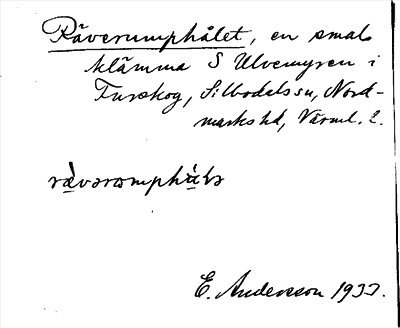 Räverumphålet, en smal
klämma S Ulvemyren i
Furskog, Silbodals sn, Nord-
marks hd, Värml. l.
E. Andersson 1933.